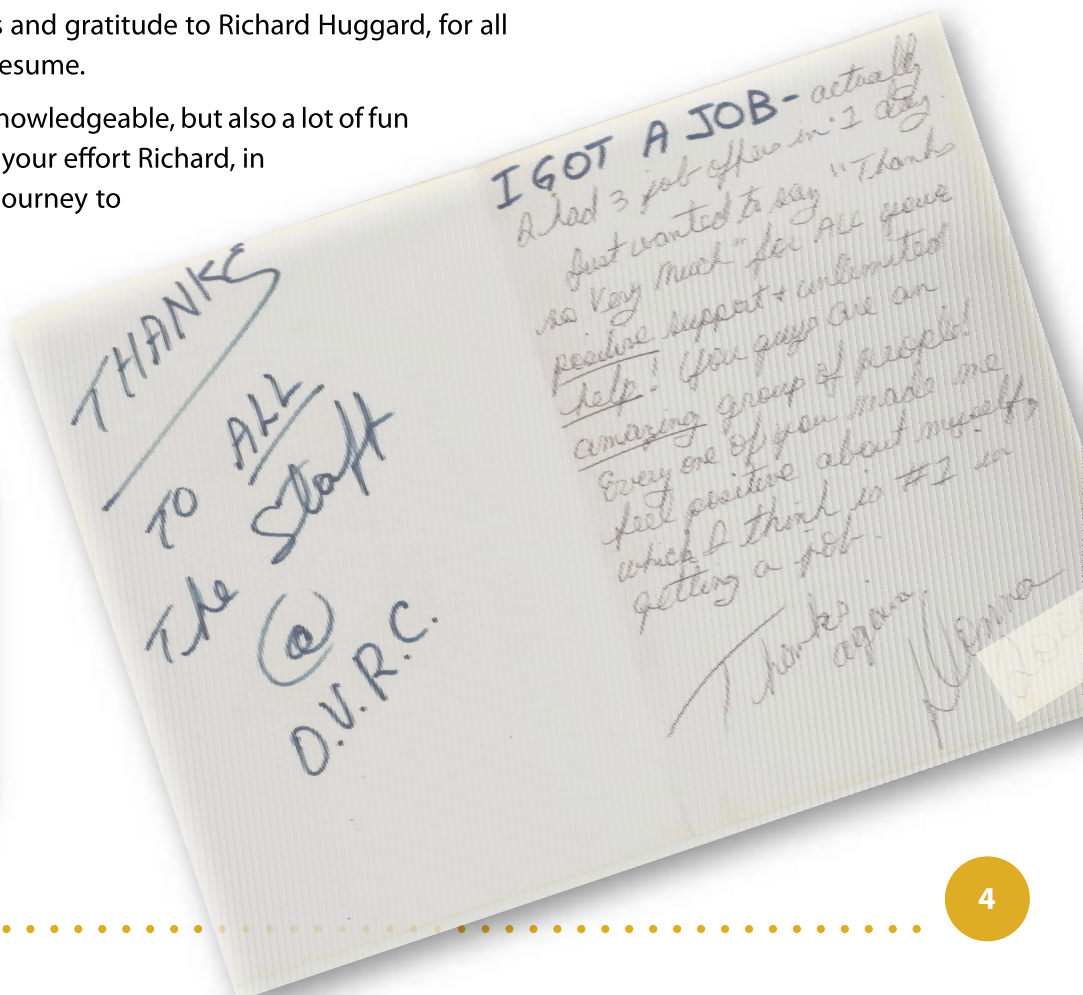 s and gratitude to Richard Huggard, for all
esume.
nowledgeable, but also a lot of fun
your effort Richard, in
ourney to
THANKS
TO ALL
The Staff
@
O.V.R.C.
I GOT A JOB - actually
I had 3 job offers in 1 day.
Just wanted to say "Thanks
so Very Much" for ALL your
positive support + unlimited
help! You guys are an
amazing group of people!
Every one of you made me
feel positive about myself,
which I think is #1 in
getting a job.
Thanks
again,
4